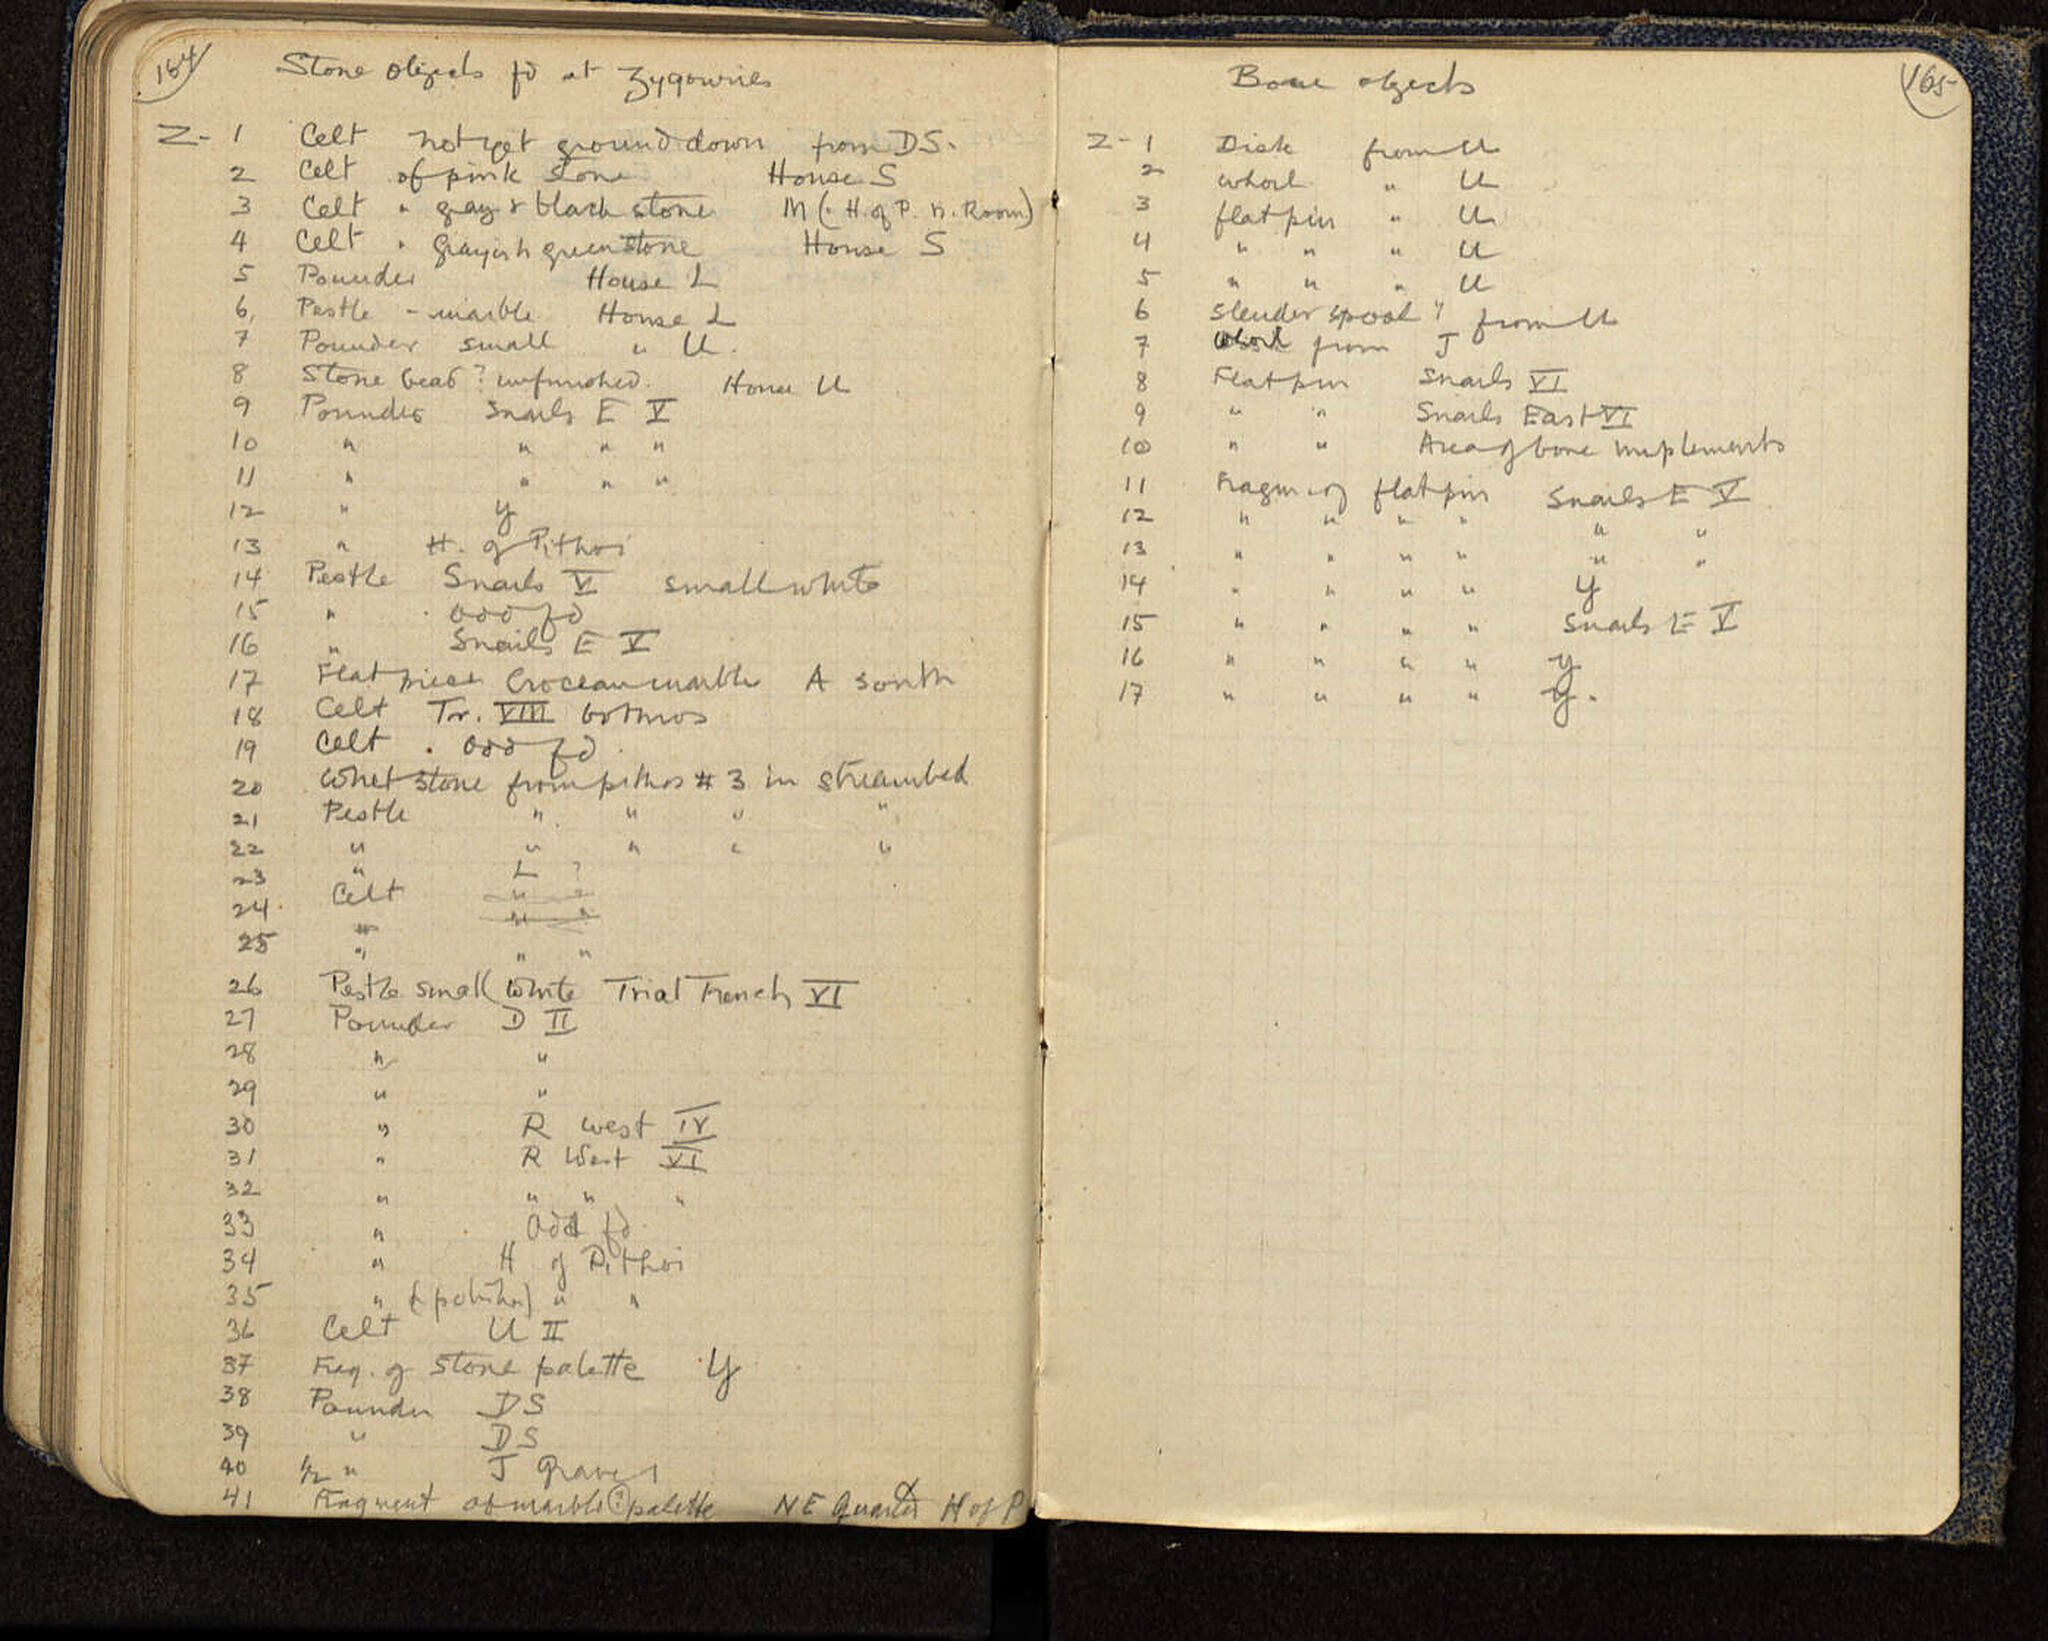 164
Stone objects fd at Zygouries
Z- 1 Celt not yet ground down from DS.
2 Celt of pink stone House S
3 Celt " gray & black stone M (= H. of P. n. Room)
4 Celt " grayish green stone House S
5 Pounder House L
6. Pestle - marble House L
7 Pounder small " U.
8 Stone bead? unfinished. House U
9 Pounder Snails E V
10 " " " "
11 " " " "
12 " Y
13 " H. of Pithoi
14 Pestle Snails V small white
15 " odd fd
16 " Snails E V
17 Flat piece Crocean marble A south
18 Celt Tr. VIII bothros
19 Celt . odd fd.
20 Whetstone from pithos # 3 in streambed
21 Pestle " " " "
22 " " " " "
23 " L ?
24. Celt " "
" "
25 " " "
26 Pestle small white Trial Trench VI
27 Pounder D II
28 " "
29 " "
30 " R West IV
31 " R West VI
32 " " " "
33 " Odd fd.
34 " H of Pithoi
35 " " "
36 Celt U II
37 Frag. of stone palette Y
38 Pounder DS
39 " DS
40 1/2 " J Grave 1
41 Fragment of marble (?) palette NE Quarter H of P
165
Bone objects
Z- 1 Disk from U
2 whorl " U
3 flat pin " U
4 " " " U
5 " " " U
6 Slender spool? from U
7 Whorl from J
8 Flat pin Snails VI
9 " " Snails East VI
10 " " Area of bone implements
11 Fragm. of flat pin Snails E V
12 " " " " " "
13 " " " " " "
14 " " " " Y
15 " " " " Snails E V
16 " " " " Y
17 " " " " Y.